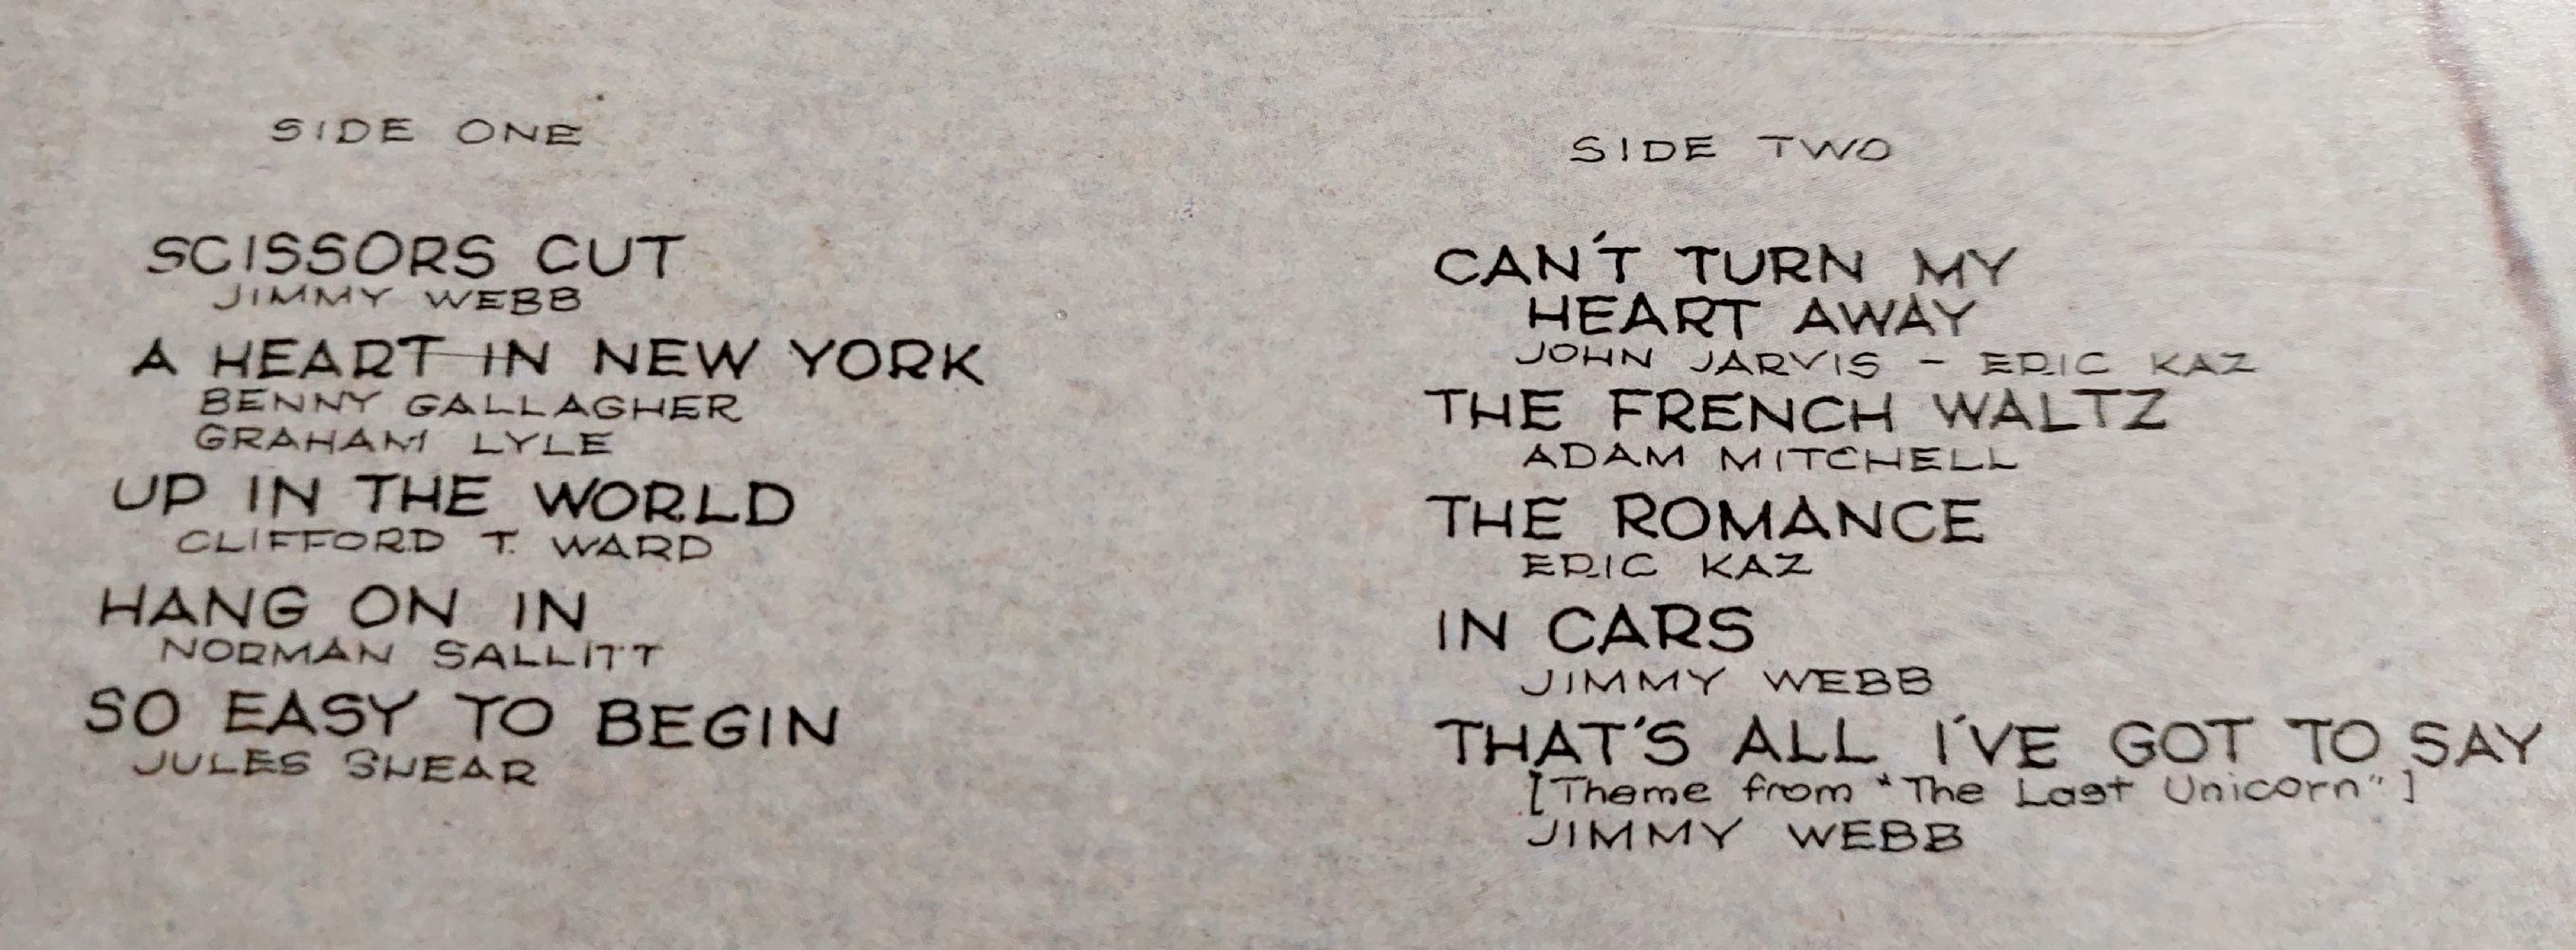 SIDE ONE
SCISSORS CUT
JIMMY WEBB
A HEART IN NEW YORK
BENNY GALLAGHER
GRAHAM LYLE
UP IN THE WORLD
CLIFFORD T. WARD
HANG ON IN
NORMAN SALLITT
SO EASY TO BEGIN
JULES SHEAR
SIDE TWO
CAN'T TURN MY
HEART AWAY
JOHN JARVIS - ERIC KAZ
THE FRENCH WALTZ
ADAM MITCHELL
THE ROMANCE
ERIC KAZ
IN CARS
JIMMY WEBB
THAT'S ALL I'VE GOT TO SAY
[Theme from "The Last Unicorn"]
JIMMY WEBB